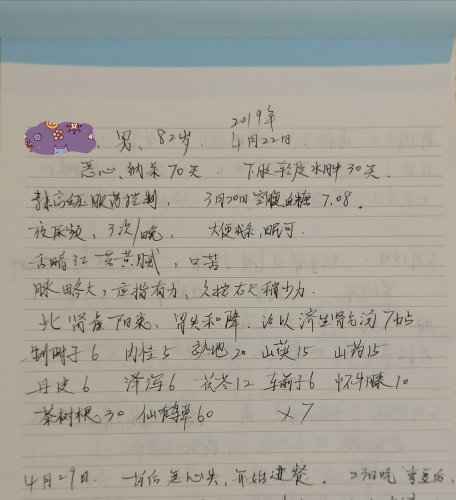 2019年
男、82岁. 4月22日.
恶心、纳呆70天. 下肢轻度水肿30天.
高血压服药控制, 3月20日空腹血糖7.08.
夜尿频, 3次/晚, 大便成条, 眠可.
舌暗红苔黄腻, 口苦.
脉略大, 应指有力, 久按右尺稍少力.
此肾虚阳亢, 胃失和降. 治以济生肾气汤加味
制附子6 肉桂5 熟地20 山萸15 山药15
丹皮6 泽泻6 茯苓12 车前子6 怀牛膝10
茶树根30 仙鹤草60 ×7
4月29日. 昔后恶心失, 开始进餐.